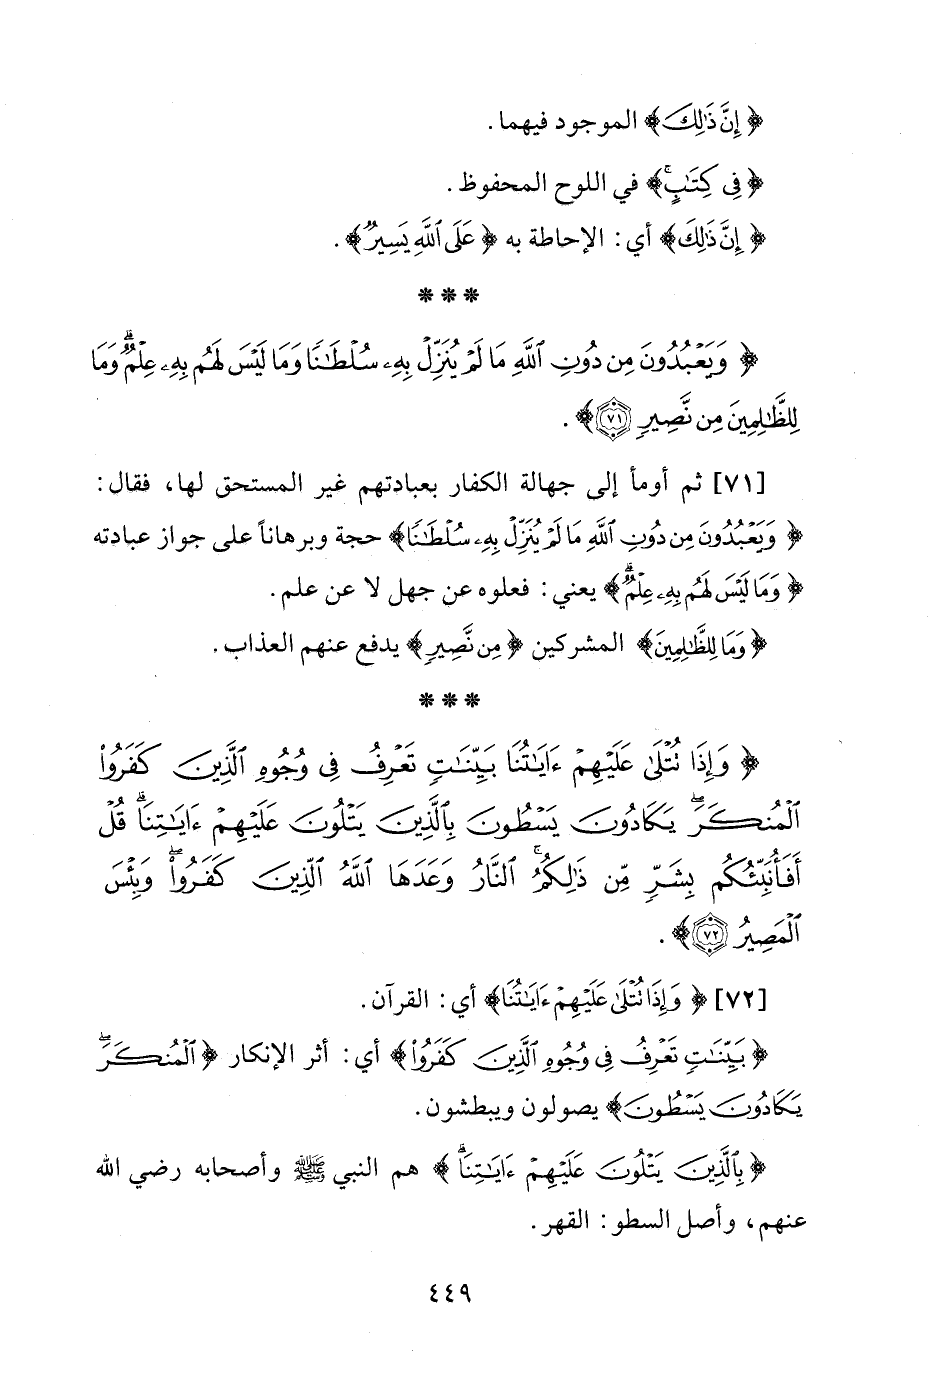 ﴿ إِنَّ ذَٰلِكَ ﴾ الموجود فيهما.
﴿ فِي كِتَٰبٍۚ ﴾ في اللوح المحفوظ.
﴿ إِنَّ ذَٰلِكَ ﴾ أي: الإحاطة به ﴿ عَلَى ٱللَّهِ يَسِيرٌ ﴾.
***
﴿ وَيَعۡبُدُونَ مِن دُونِ ٱللَّهِ مَا لَمۡ يُنَزِّلۡ بِهِۦ سُلۡطَٰنٗا وَمَا لَيۡسَ لَهُم بِهِۦ عِلۡمٞۗ وَمَا
لِلظَّٰلِمِينَ مِن نَّصِيرٖ ٧١ ﴾.
[٧١] ثم أومأ إلى جهالة الكفار بعبادتهم غير المستحق لها، فقال:
﴿ وَيَعۡبُدُونَ مِن دُونِ ٱللَّهِ مَا لَمۡ يُنَزِّلۡ بِهِۦ سُلۡطَٰنٗا ﴾ حجة وبرهاناً على جواز عبادته
﴿ وَمَا لَيۡسَ لَهُم بِهِۦ عِلۡمٞۗ ﴾ يعني: فعلوه عن جهل لا عن علم.
﴿ وَمَا لِلظَّٰلِمِينَ ﴾ المشركين ﴿ مِن نَّصِيرٖ ﴾ يدفع عنهم العذاب.
***
﴿ وَإِذَا تُتۡلَىٰ عَلَيۡهِمۡ ءَايَٰتُنَا بَيِّنَٰتٖ تَعۡرِفُ فِي وُجُوهِ ٱلَّذِينَ كَفَرُواْ
ٱلۡمُنكَرَۖ يَكَادُونَ يَسۡطُونَ بِٱلَّذِينَ يَتۡلُونَ عَلَيۡهِمۡ ءَايَٰتِنَاۗ قُلۡ
أَفَأُنَبِّئُكُم بِشَرّٖ مِّن ذَٰلِكُمُۚ ٱلنَّارُ وَعَدَهَا ٱللَّهُ ٱلَّذِينَ كَفَرُواْۖ وَبِئۡسَ
ٱلۡمَصِيرُ ٧٢ ﴾.
[٧٢] ﴿ وَإِذَا تُتۡلَىٰ عَلَيۡهِمۡ ءَايَٰتُنَا ﴾ أي: القرآن.
﴿ بَيِّنَٰتٖ تَعۡرِفُ فِي وُجُوهِ ٱلَّذِينَ كَفَرُواْ ﴾ أي: أثر الإنكار ﴿ ٱلۡمُنكَرَۖ
يَكَادُونَ يَسۡطُونَ ﴾ يصولون ويبطشون.
﴿ بِٱلَّذِينَ يَتۡلُونَ عَلَيۡهِمۡ ءَايَٰتِنَاۗ ﴾ هم النبي ﷺ وأصحابه رضي الله
عنهم، وأصل السطو: القهر.
٤٤٩